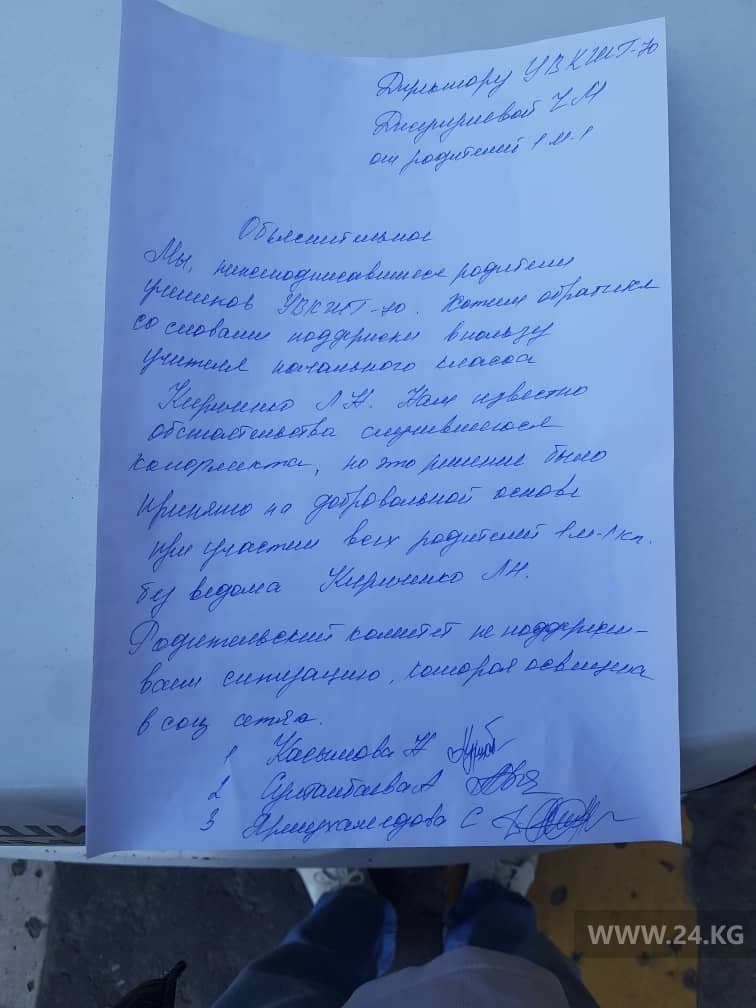 Директору УВКШГ-70
Ч М
от родителей 1 м-1
Объяснительное
Мы, нижеподписавшиеся родители
учеников УВКШГ-70. Хотим обратится
со словами поддержки в пользу
учителя начального класса
Кириченко Л Н. Нам известно
обстоятельства случившегося
конфликта, но это решение было
принято на добровальной основе
при участии всех родителей 1м-1 кл.
без ведома Кириченко Л Н.
Родительский комитет не поддержи-
ваем ситуацию, которая освещена
в соц сетях.
1 Касымова Н
2 Султанбаева А
3 Ярмухамедова С
WWW.24.KG